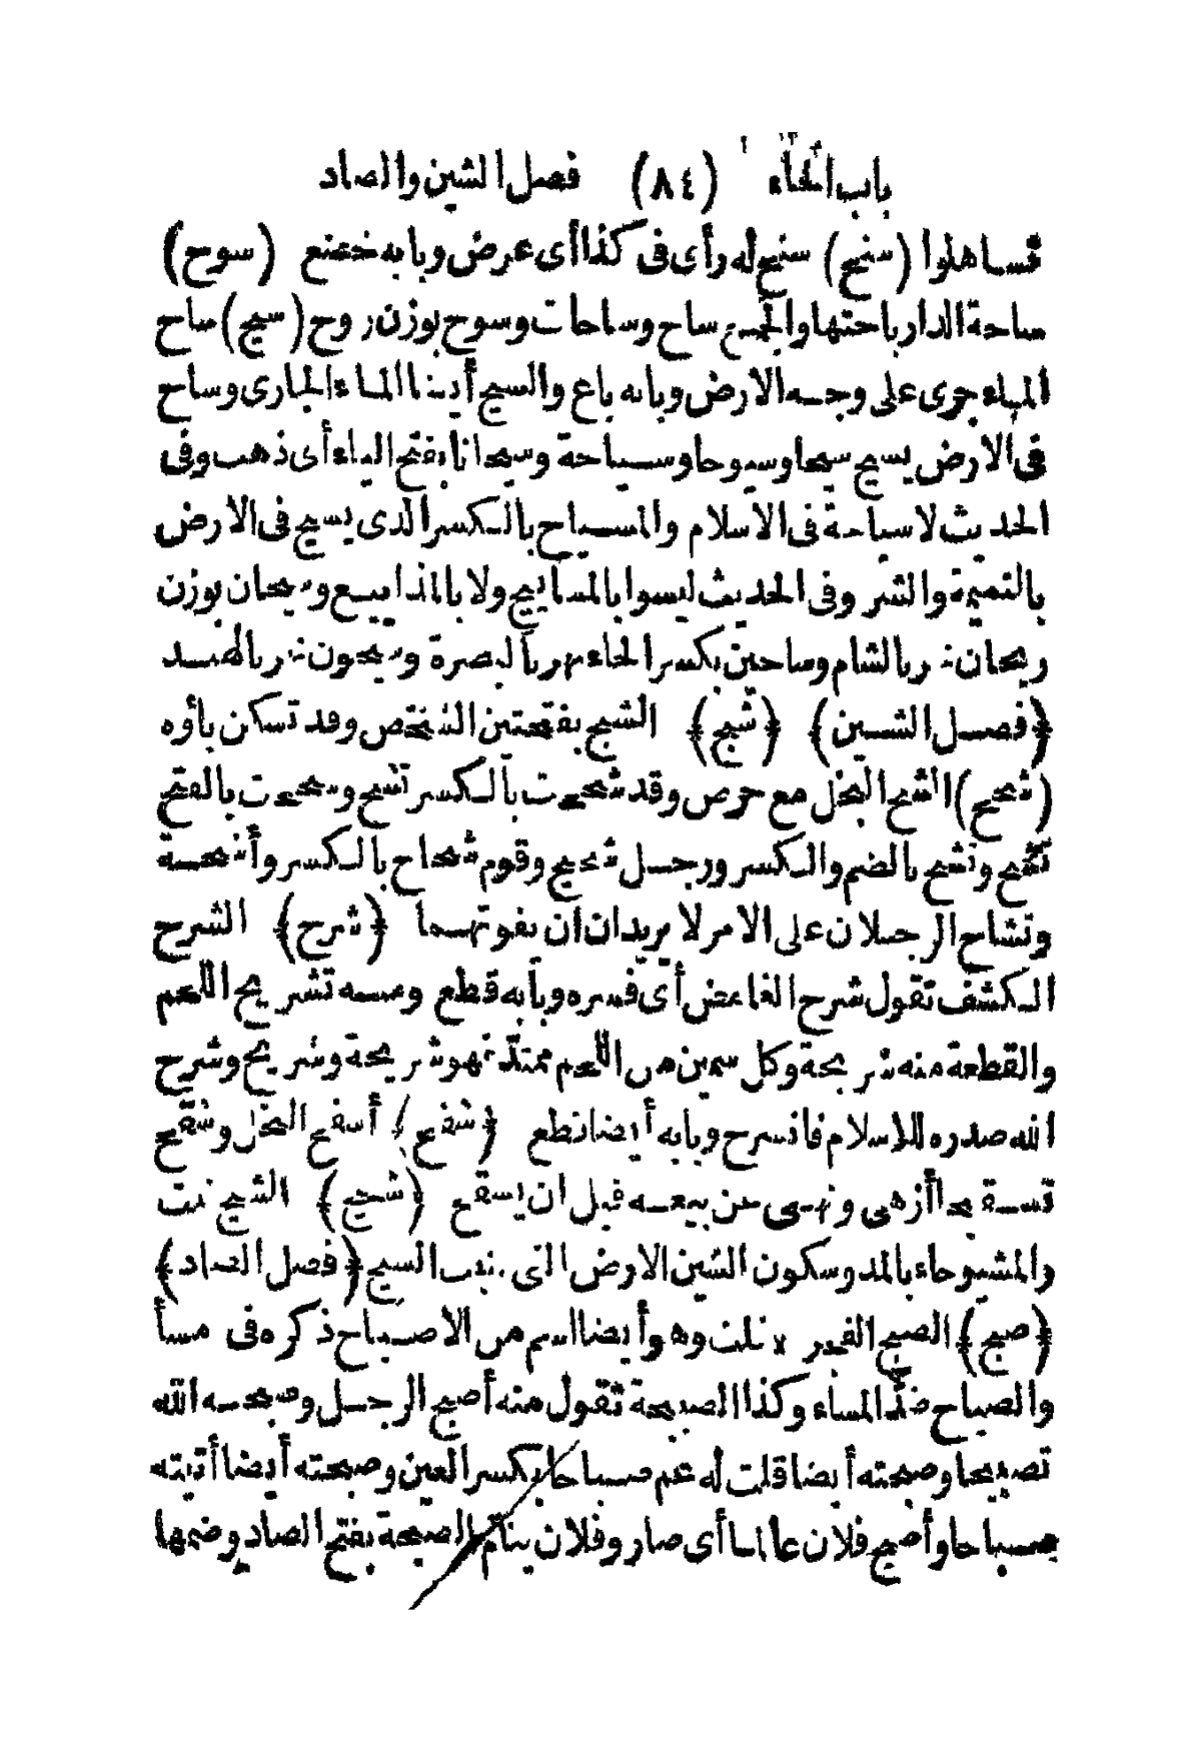 باب الحاء (٨٤) فصل الشين والصاد
تساهلوا (سنح) سنح له رأى فى كذا أى عرض وبابه خضع (سوح)
ساحة الدار باحتها والجمع ساح وساحات وسوح بوزن روح (سيح) ساح
الماء جرى على وجه الارض وبابه باع والسيح أيضا الماء الجارى وساح
فى الارض يسيح سيحا وسيوحا وسياحة وسيحانا بفتح الياء أى ذهب وفى
الحديث لا سياحة فى الاسلام والمسياح بالكسر الذى يسيح فى الارض
بالنميمة والشر وفى الحديث ليسوا بالمساييح ولا بالمذاييع وسيحان بوزن
ريحان نهر بالشام وساحين بكسر الحاء نهر بالبصرة وسيحون نهر بالهند
﴿فصل الشين﴾ ﴿شبح﴾ الشبح بفتحتين الشخص وقد تسكن باؤه
(شحح) الشح البخل مع حرص وقد شححت بالكسر تشح وشححت بالفتح
تشح وتشح بالضم والكسر ورجل شحيح وقوم شحاح بالكسر وأشحة
وتشاح الرجلان على الامر لا يريدان ان يفوتهما ﴿شرح﴾ الشرح
الكشف تقول شرح الغامض أى فسره وبابه قطع ومنه تشريح اللحم
والقطعة منه شريحة وكل سمين من اللحم ممتد فهو شريحة وشريح وشرح
الله صدره للاسلام فانشرح وبابه أيضا قطع ﴿شقح﴾ أشقح النخل وشقح
تشقيحا أزهى ونهى عن بيعه قبل ان يشقح ﴿شيح﴾ الشيح نبت
والمشيوحاء بالمد وسكون الشين الارض التى تنبت الشيح ﴿فصل الصاد﴾
﴿صبح﴾ الصبح الفجر وهو أيضا اسم من الاصباح ذكره فى مسأ
والصباح ضد المساء وكذا الصبيحة تقول منه أصبح الرجل وصبحه الله
تصبيحا وصبحته أيضا قلت له عم صباحا بكسر العين وصبحته أيضا أتيته
صباحا وأصبح فلان عالما أى صار وفلان ينام الصبحة بفتح الصاد وضمها